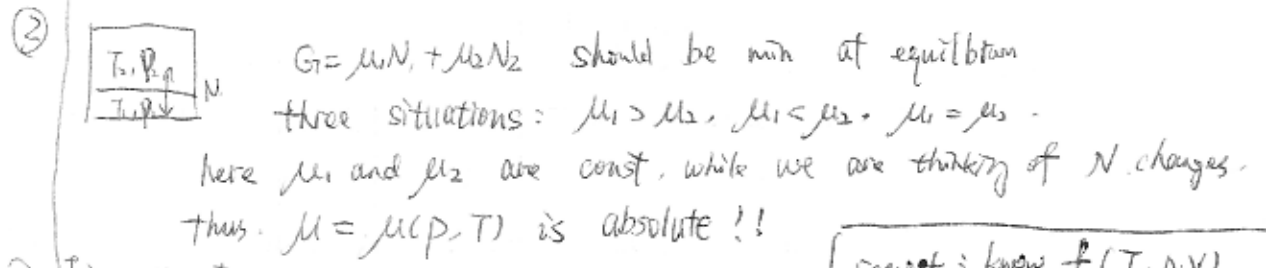 ②
T₂, P₂
T₁, P₁
N
G = μ₁N₁ + μ₂N₂ should be min at equilbrium
three situations: μ₁ > μ₂, μ₁ < μ₂, μ₁ = μ₂.
here μ₁ and μ₂ are const, while we are thinking of N changes.
thus. μ = μ(P, T) is absolute !!
know f(T,